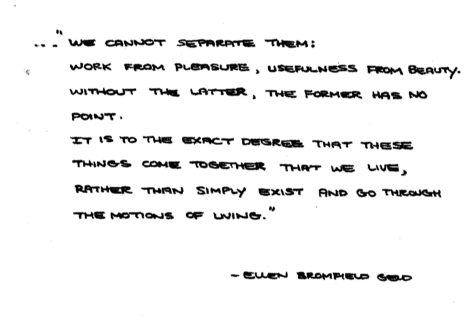 ..."WE CANNOT SEPARATE THEM:
WORK FROM PLEASURE, USEFULNESS FROM BEAUTY.
WITHOUT THE LATTER, THE FORMER HAS NO
POINT.
IT IS TO THE EXACT DEGREE THAT THESE
THINGS COME TOGETHER THAT WE LIVE,
RATHER THAN SIMPLY EXIST AND GO THROUGH
THE MOTIONS OF LIVING."
- ELLEN BROMFIELD GELD